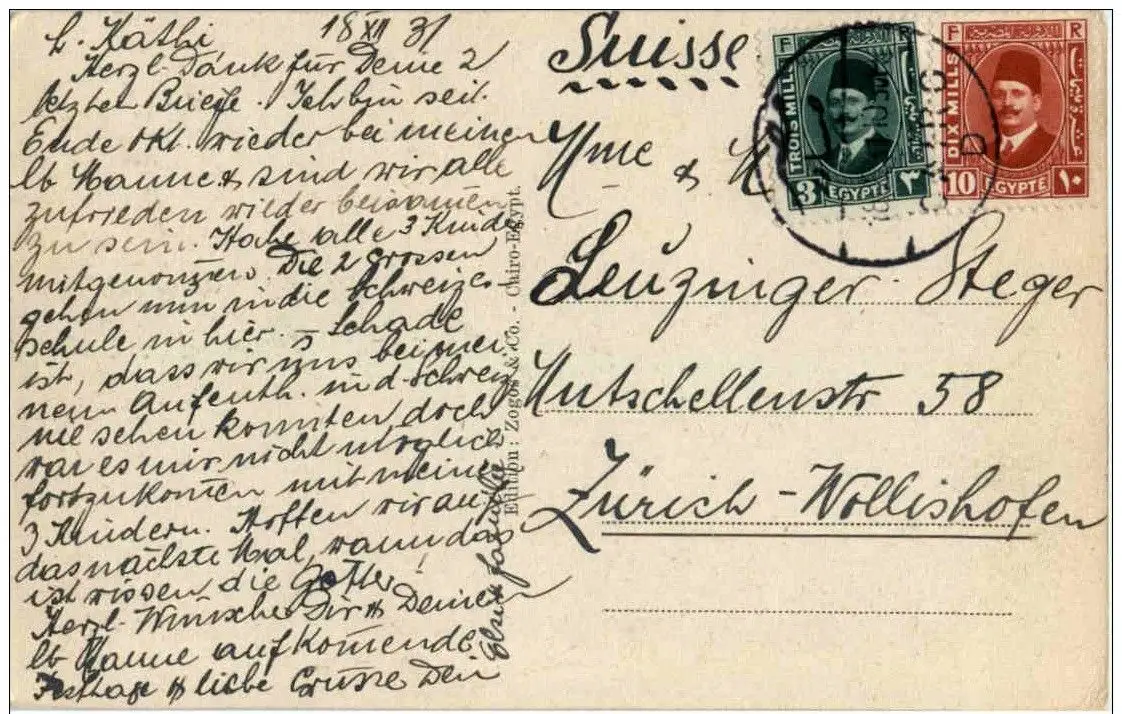 L. Käthi 18 XII 31
Herzl. Dank für Deine 2
letzten Briefe. Ich bin seit
Ende Okt. wieder bei meinem
lb Manne & sind wir alle
zufrieden wieder beisamen
zu sein. Habe alle 3 Kinder
mitgenomen. Die 2 grossen
gehen nun in die Schweizer-
schule in hier. – Schade
ist, dass wir uns bei mei-
nem Aufenth. in d. Schweiz
nie sehen konnten, doch
war es mir nicht möglich
fortzukomen mit meinen
3 Kindern. Hoffen wir auf
das nächste Mal, wann das
ist wissen die Götter!
Herzl. Wünsche Dir & Deinem
lb Manne auf komende
Festtage & liebe Grüsse Dein
Elsi & familie
Edition: Zogos & Co. - Cairo-Egypt.
Suisse
Mme & M
Leuzinger-Steger
Mutschellenstr 58
Zürich-Wollishofen
F R
TROIS MILLS
3 EGYPTE ٣
CAIRO
F R
DIX MILLS
10 EGYPTE ١٠